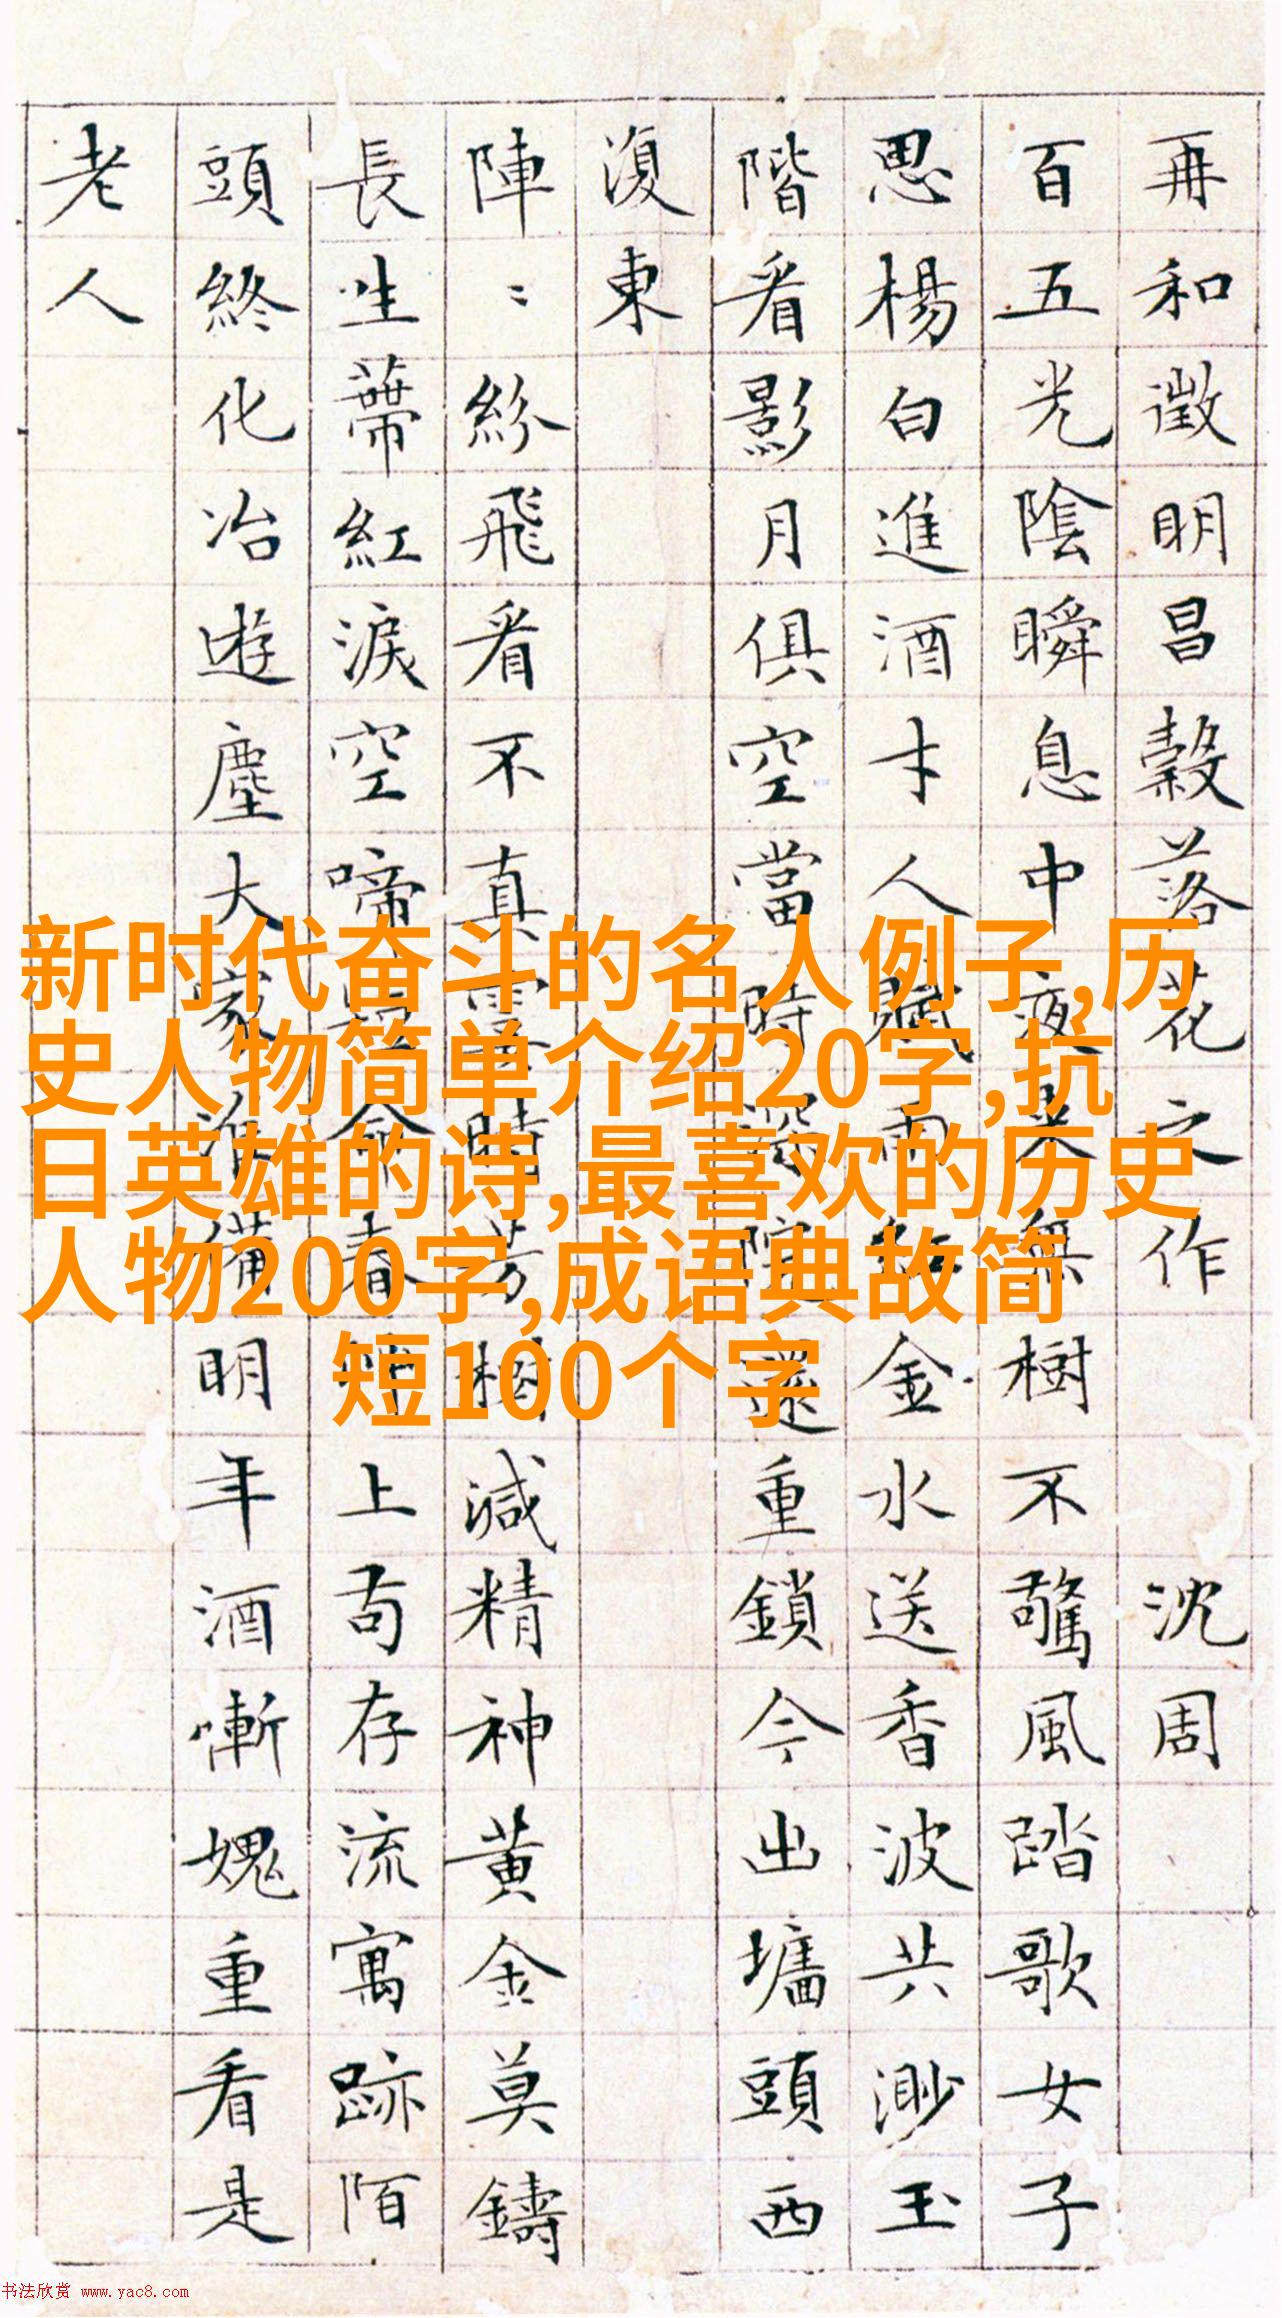 再和徵明昌穀落花之作 沈周
百五光陰瞬息中夜來無樹不驚風踏歌女子
思楊白進酒才人賦雨金水送香波共渺玉
階看影月俱空當時深院還重鎖今出墻頭西
復東
陣〻紛飛看不真霎時芳樹減精神黃金莫鑄
長生蔕紅淚空啼命春上苟存流寓跡陌
頭終化冶遊塵大家准備明年酒慚媿重看是
老人
新时代奋斗的名人例子,历
史人物简单介绍20字,抗
日英雄的诗,最喜欢的历史
人物200字,成语典故简
短100个字
书法欣赏 www.yac8.com